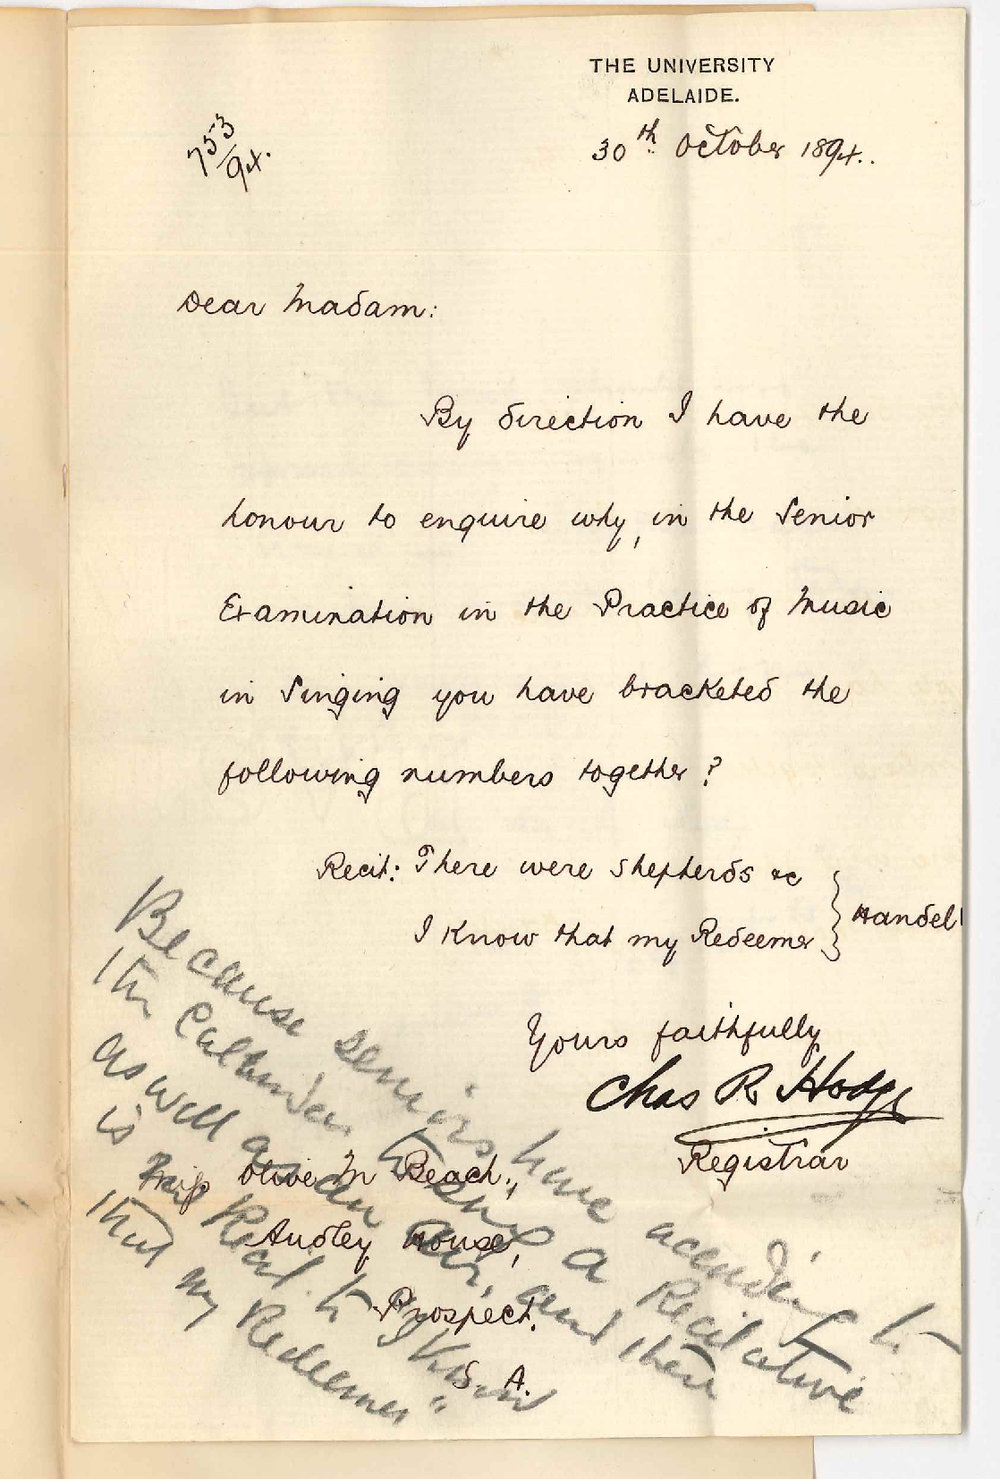 THE UNIVERSITY
ADELAIDE.
753/94.
30th October 1894..
Dear Madam:
By direction I have the
honour to enquire why, in the Senior
Examination in the Practice of Music
in Singing you have bracketed the
following numbers together?
Recit: There were shepherds &c
I know that my Redeemer } Handel
Yours faithfully
Chas R Hodge
Registrar
Miss Olive M Reach.,
Audley House,
Prospect.
S. A.
Because seniors have according to
the Calendar to sing a Recitative
as well as an air, and there
is no Recit. to "I know
that my Redeemer"